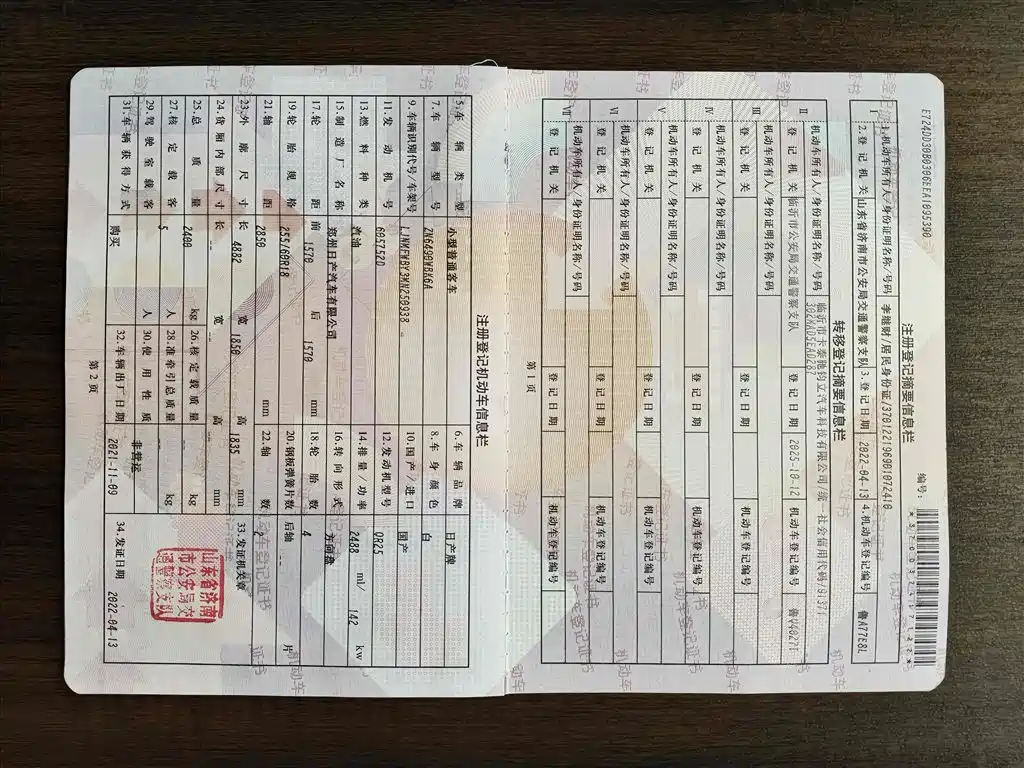 注册登记摘要信息栏
编号:
1.机动车所有人/身份证明名称/号码 李继财/居民身份证/370122196901072410
2.登记机关 山东省济南市公安局交通警察支队 3.登记日期 2022-04-13 4.机动车登记编号 鲁A77E8L
转移登记摘要信息栏
II 机动车所有人/身份证明名称/号码 临沂市卡泰驰钧立汽车科技有限公司/统一社会信用代码/91371
302MAD5EAD281
登记机关 临沂市公安局交通警察支队 登记日期 2025-10-12 机动车登记编号
III 机动车所有人/身份证明名称/号码
登记机关 登记日期 机动车登记编号
IV 机动车所有人/身份证明名称/号码
登记机关 登记日期 机动车登记编号
V 机动车所有人/身份证明名称/号码
登记机关 登记日期 机动车登记编号
VI 机动车所有人/身份证明名称/号码
登记机关 登记日期 机动车登记编号
VII 机动车所有人/身份证明名称/号码
登记机关 登记日期 机动车登记编号
第 1 页
注册登记机动车信息栏
5.车辆类型 小型普通客车 6.车辆品牌 日产牌
7.车辆型号 ZN6489WBK6A 8.车身颜色 白
9.车辆识别代号/车架号 10.国产/进口 国产
11.发动机号 695752D 12.发动机型号 QR25
13.燃料种类 汽油 14.排量/功率 2488 ml/ 142 kw
15.制造厂名称 郑州日产汽车有限公司 16.转向形式 方向盘
17.轮距 前 1570 后 1570 mm 18.轮胎数 4
19.轮胎规格 255/60R18 20.钢板弹簧片数 后轴 -- 片
21.轴距 2850 mm 22.轴数 2
23.外廓尺寸 长 4882 宽 1850 高 1835 mm 33.发证机关章
24.货厢内部尺寸 长 -- 宽 -- 高 -- mm
25.总质量 2400 kg 26.核定载质量 -- kg
27.核定载客 5 人 28.准牵引总质量 -- kg
29.驾驶室载客 -- 人 30.使用性质 非营运
31.车辆获得方式 购买 32.车辆出厂日期 2021-11-09 34.发证日期 2022-04-13
山东省济南
市公安局交
通警察支队
第 2 页